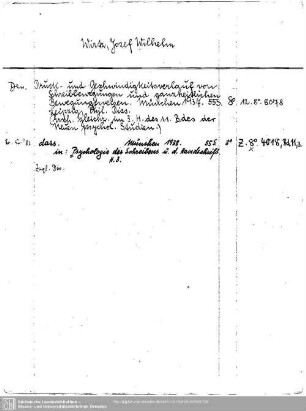 Wirtz, Josef Wilhelm
Den. Druck- und Geschwindigkeitsverlauf von
Schreibbewegungen und ganzheitlichen
Bewegungsweisen. München 1937. 55 S. 8° 12. 8°. 8078
Leipzig, Phil. Diss.
ersch. gleichz. im 3. H. des 11. Bdes der
Neuen Psychol. Studien.)
dass. München 1938. 55 S 8° Z. 8° 4018, Bd. 11,3
in: Psychologie des Schreibens u. d. Handschrift.
H.3.
Zugl. Diss.